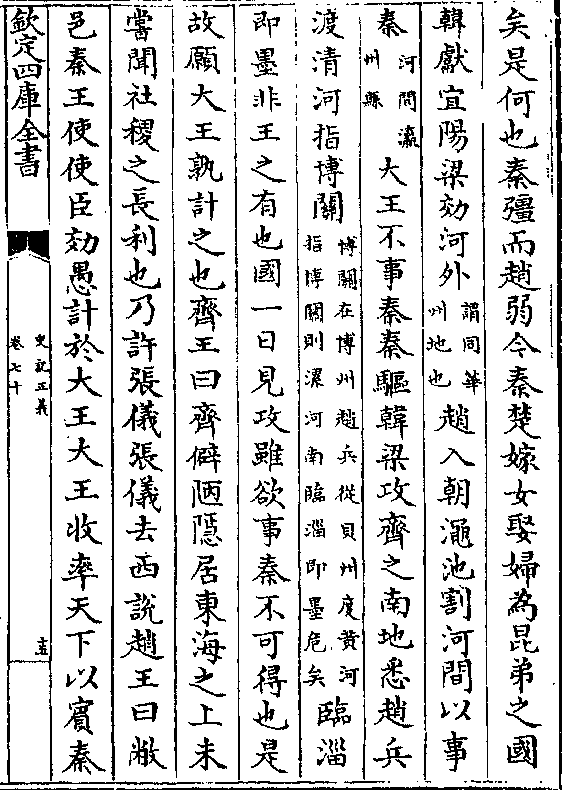 矣是何也秦彊而趙弱今秦楚嫁女娶婦為昆弟之國
韓獻宜陽梁効河外謂同華州地也趙入朝澠池割河間以事
秦河間瀛州縣大王不事秦秦驅韓梁攻齊之南地悉趙兵
渡清河指博關博關在博州趙兵從貝州度黄河指博關則漯河南臨淄即墨危矣臨淄
即墨非王之有也國一日見攻雖欲事秦不可得也是
故願大王孰計之也齊王曰齊僻陋隱居東海之上未
嘗聞社稷之長利也乃許張儀張儀去西說趙王曰敝
邑秦王使使臣効愚計於大王大王收率天下以賓秦
欽定四庫全書
史記正義
卷七十
十五